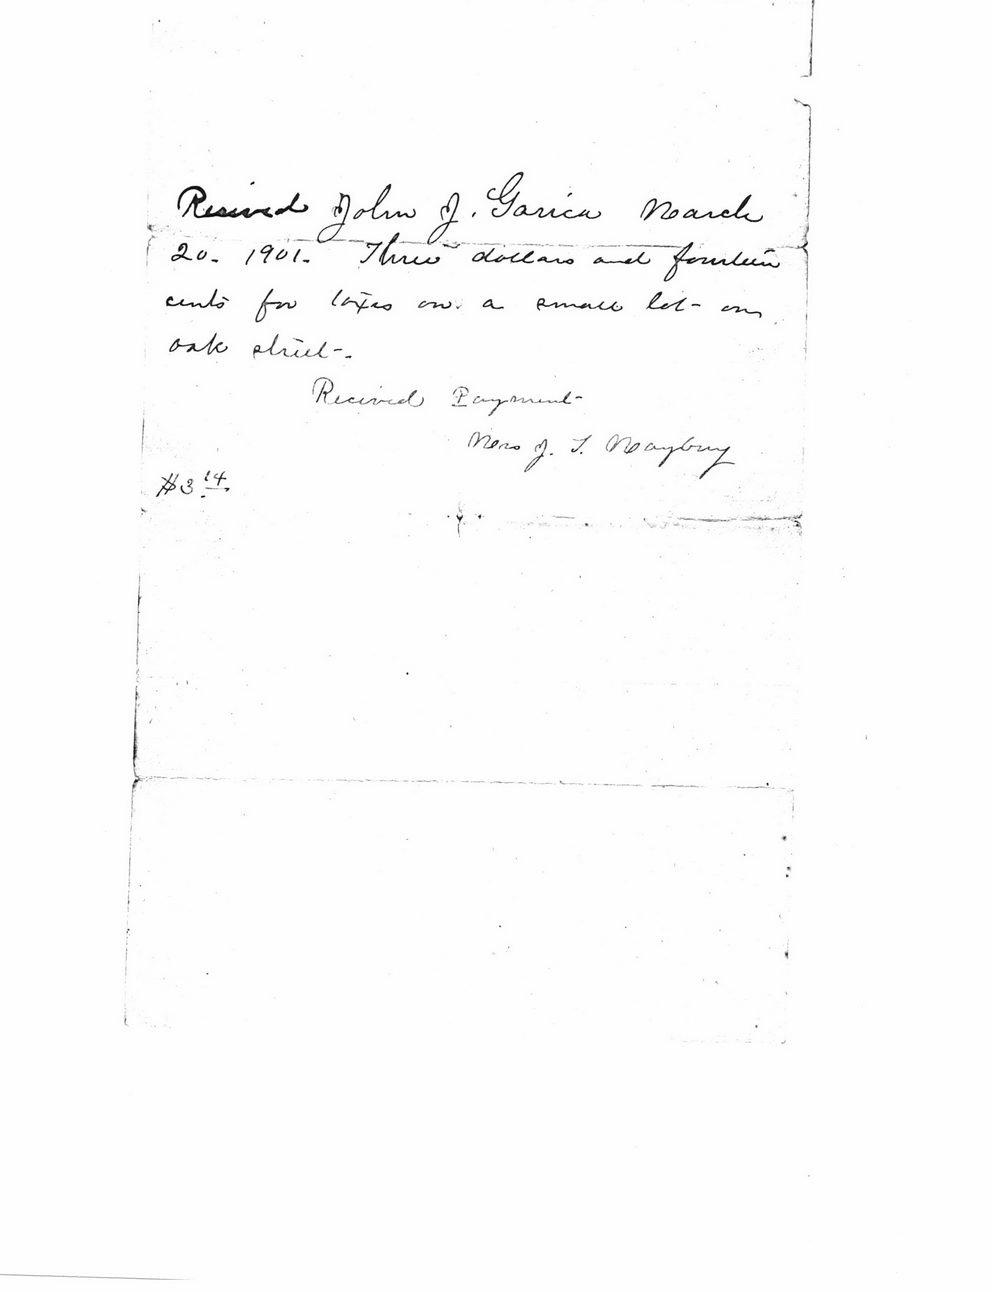 Recived John J. Garica March
20. 1901. Three dollars and fourteen
cents for taxes on a small lot on
oak street.
Recived Payment
Mrs J. T. Maybury
$3 14